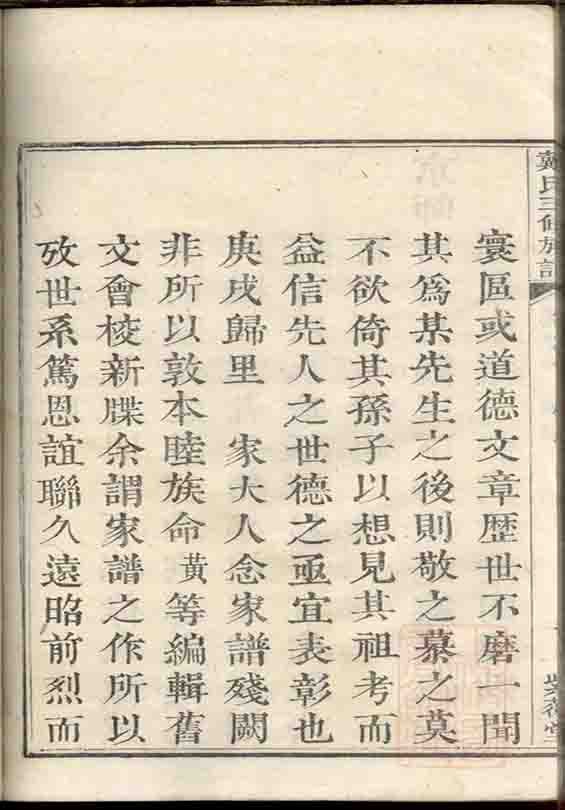 戴氏三修族譜
寰區或道德文章歷世不磨一聞
其爲某先生之後則敬之慕之莫
不欲倚其孫子以想見其祖考而
益信先人之世德之亟宜表彰也
庚戌歸里　家大人念家譜殘闕
非所以敦本睦族命　黃等編輯舊
文會校新牒余謂家譜之作所以
攷世系篤恩誼聯久遠昭前烈而